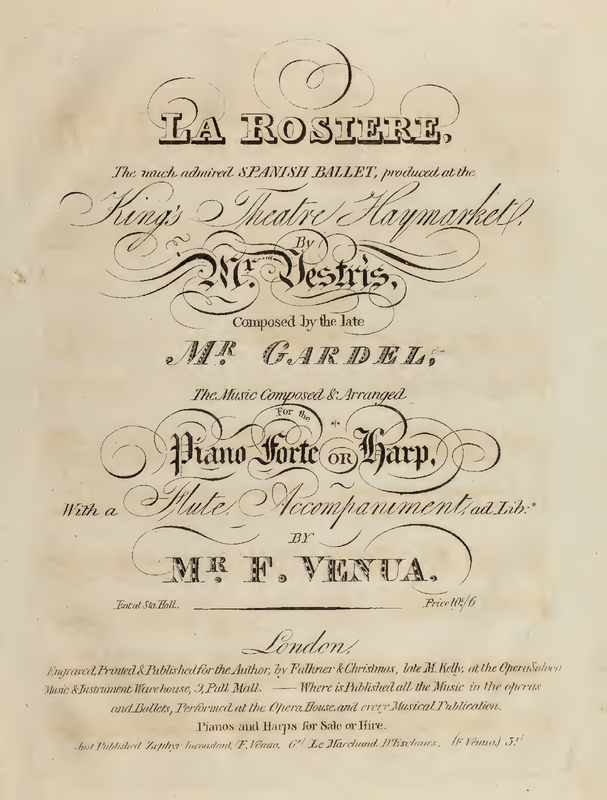 LA ROSIERE,
The much admired SPANISH BALLET, produced at the
King's Theatre Haymarket,
By
Mr. Vestris,
Composed by the late
MR. GARDEL;
The Music Composed & Arranged
For the
Piano Forte OR Harp,
With a Flute Accompaniment, ad Lib:
BY
MR. F. VENUA.
Ent at Sta. Hall. Price 10s/6
London,
Engraved, Printed & Published for the Author, by Falkner & Christmas, late M. Kelly, at the Opera Saloon
Music & Instrument Warehouse, 9, Pall Mall. — Where is Published all the Music in the operas
and Ballets, Performed at the Opera House, and every Musical Publication.
Pianos and Harps for Sale or Hire.
Just Published Zephyr Inconstant, (F. Venua, 6s/ Le Marchand D'Esclaves, (F Venua.) 5s/